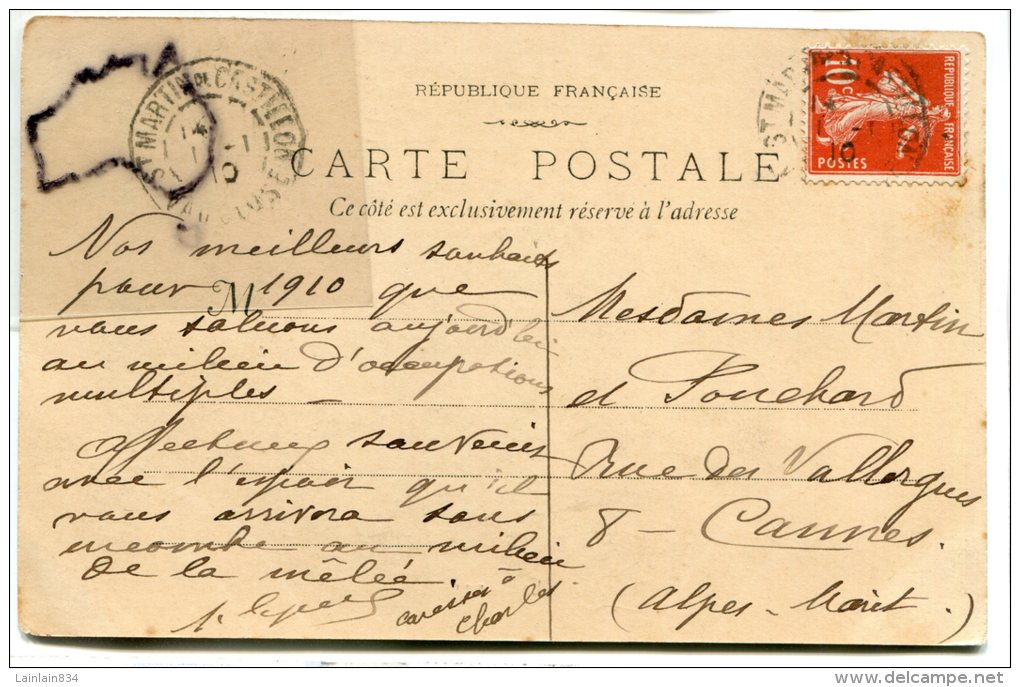 ST MARTIN DE CASTILLON
VAUCLUSE
1 -1
10
RÉPUBLIQUE FRANÇAISE
CARTE POSTALE
Ce côté est exclusivement réservé à l'adresse
10c
REPUBLIQUE FRANÇAISE
POSTES
Nos meilleurs souhaits
pour 1910 que
M
vous saluons aujourd'hui
au milieu d'occupations
multiples _
Affectueux souvenirs
avec l'espoir qu'il
vous arrivera sans
encombre au milieu
de la mêlée.
caresses à
Charles
Mesdames Martin
et Pouchard
Rue des Vallergues
8 - Cannes.
(Alpes-Marit.)
Lainlain834
www.delcampe.net